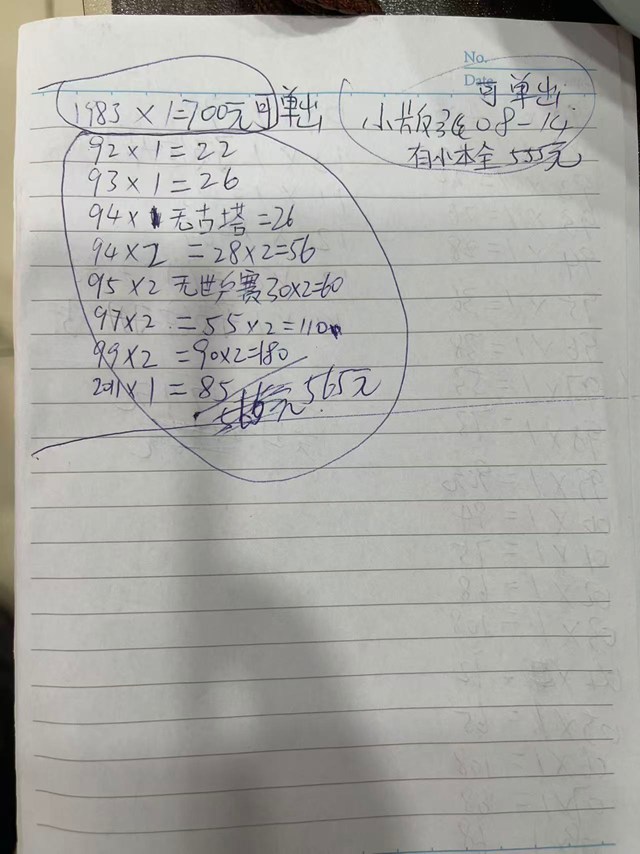 No.
Date
可单出
1983×1=700元可单出
小版张08-14
有小本全 555元
92×1=22
93×1=26
94× 无古塔=26
94×2 =28×2=56
95×2 无世乒赛30×2=60
97×2 =55×2=110
99×2 =90×2=180
2011×1=85
565元